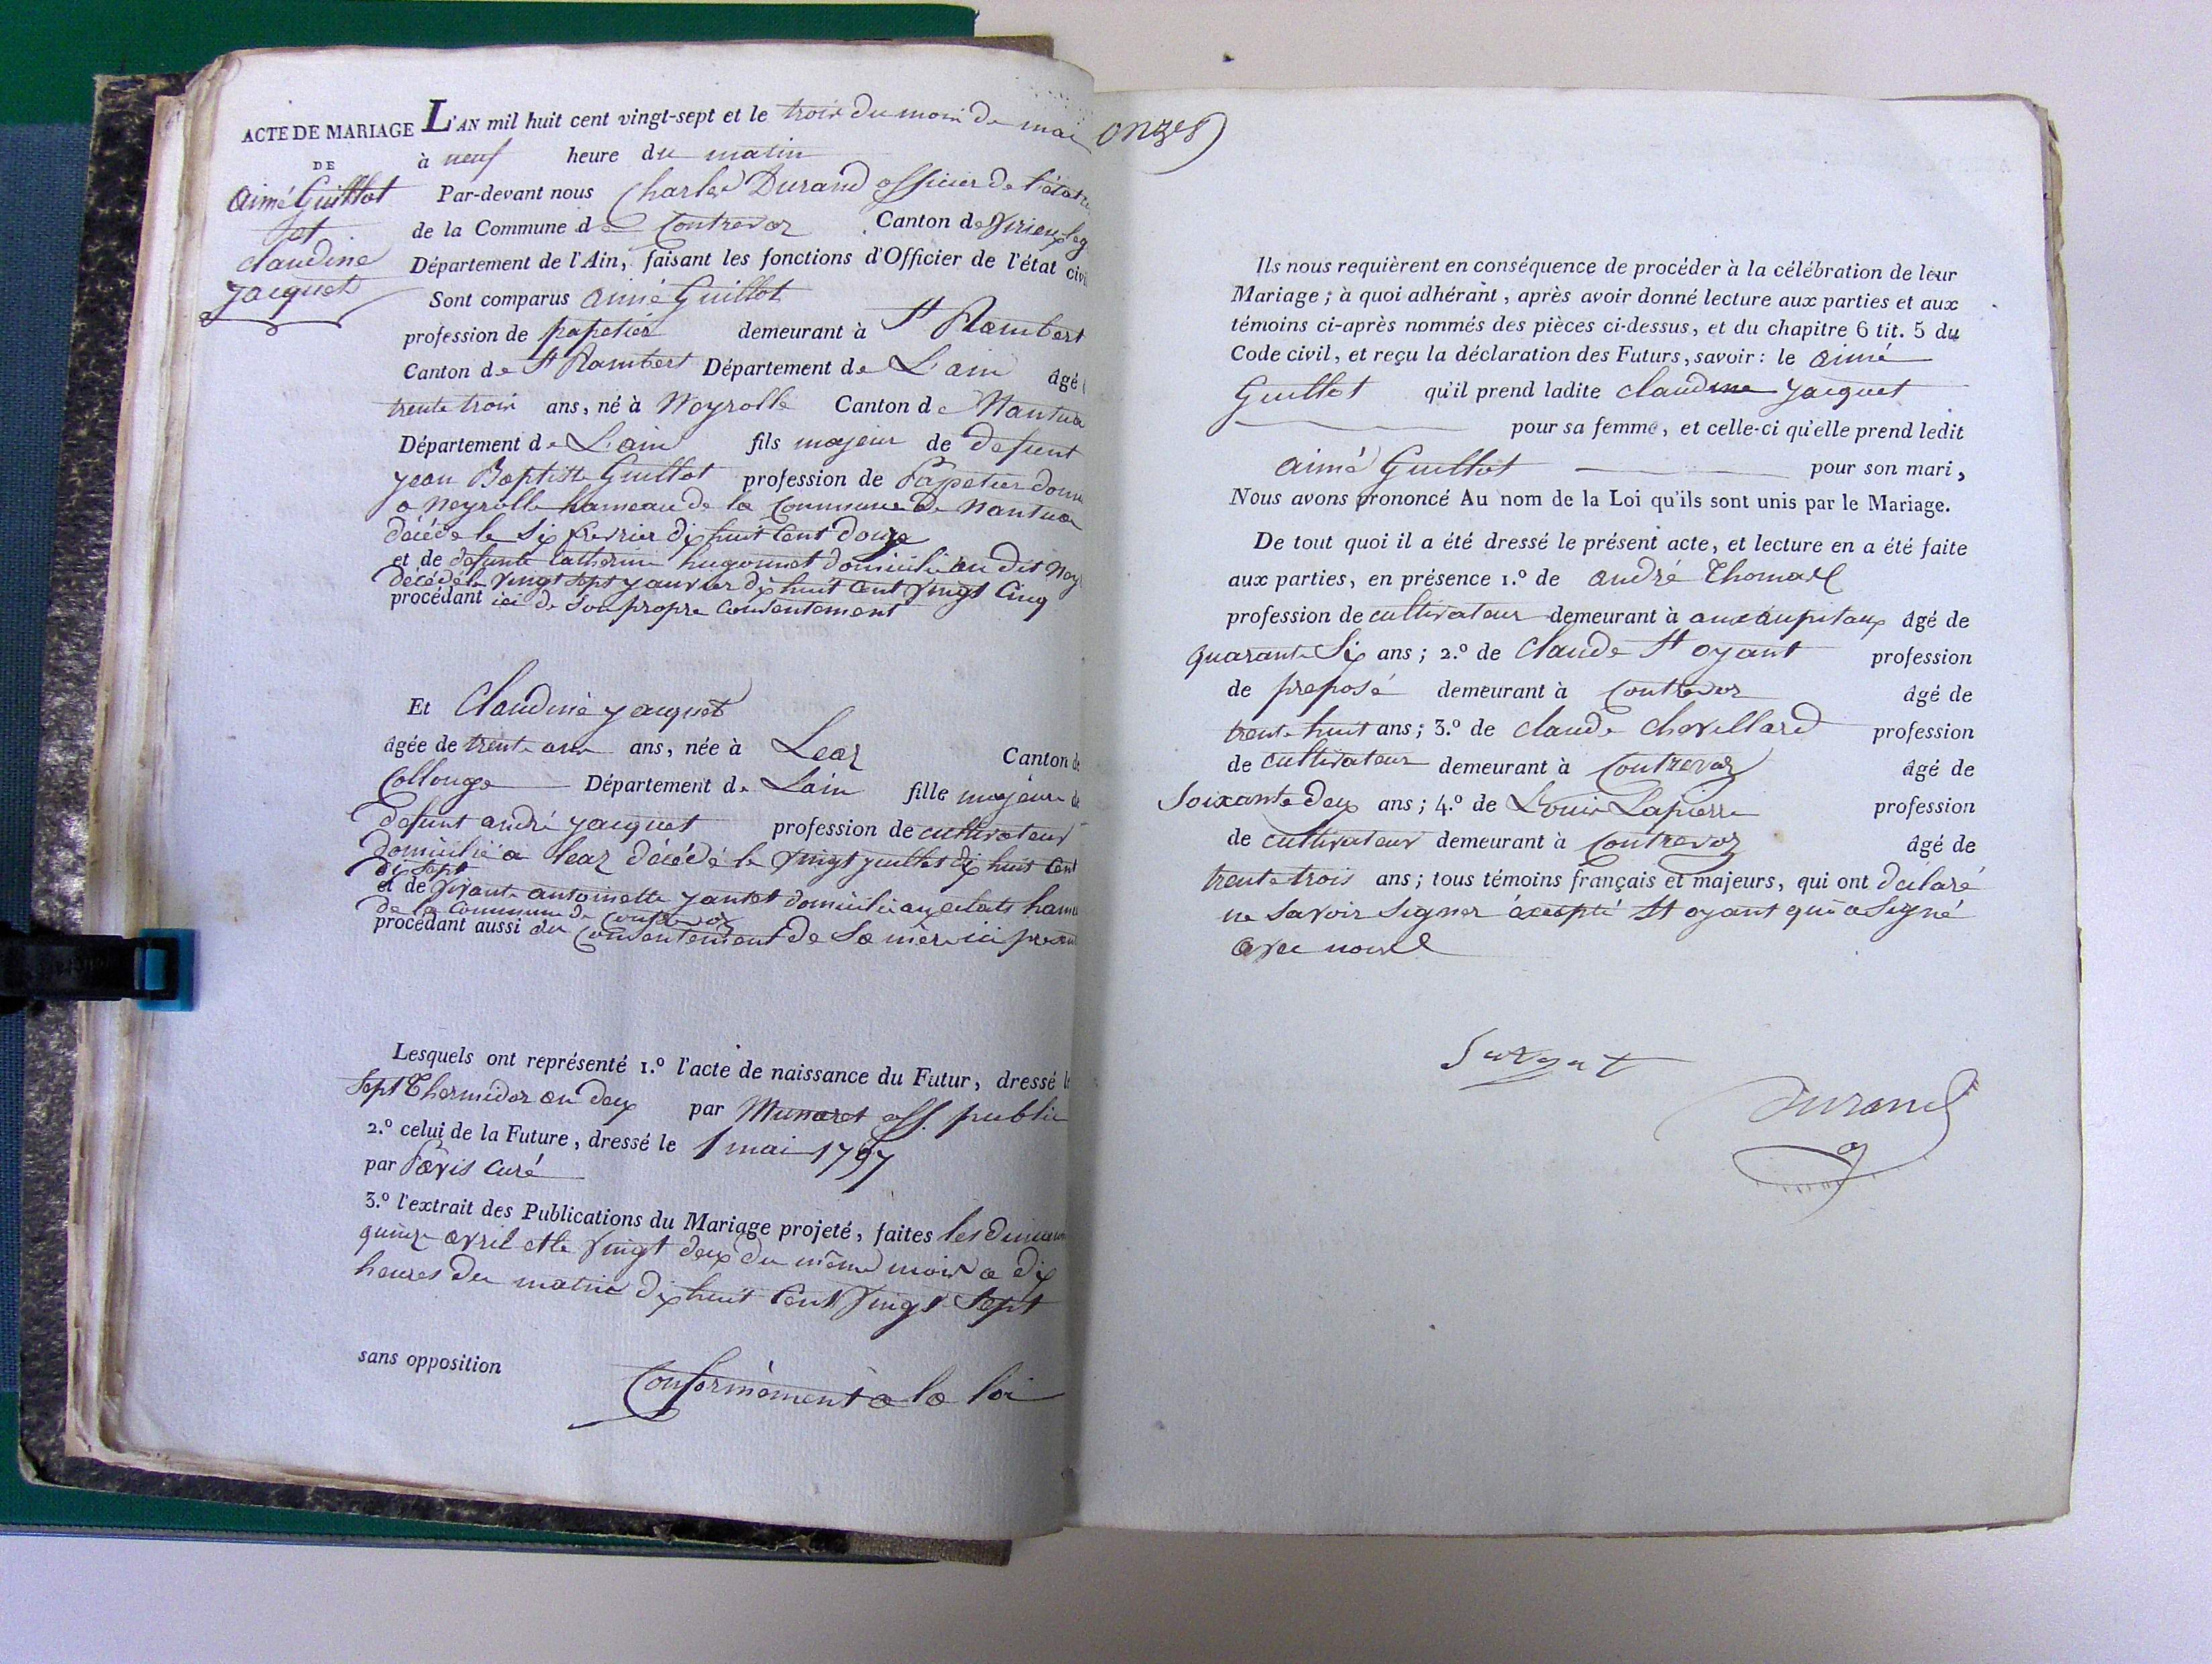 ACTE DE MARIAGE
DE
aimé Guillot
et
claudine
jacquet
L'AN mil huit cent vingt-sept et le trois du mois de mai
à neuf heure du matin
Par-devant nous Charles Durand officier de l'état
de la Commune de Contrevoz Canton de Virieux
Département de l'Ain, faisant les fonctions d'Officier de l'état civil
Sont comparus aimé Guillot
profession de papetier demeurant à St Rambert
Canton de St Rambert Département de L'ain âgé
trente trois ans, né à Neyrolle Canton de Nantua
Département de L'ain fils majeur de defunt
jean Baptiste Guillot profession de Papetier
a Neyrolle hameau de la Commune de Nantua
décédé le Six fevrier dix huit Cent douze
et de defunte Catherine hugonnet domicilié au dit
décédé le vingt sept janvier dix huit Cent vingt Cinq
procédant ici de Son propre Consentement
Et Claudine jacquet
âgée de trente ans ans, née à Leaz Canton de
Collonge Département de Lain fille majeure de
defunt andré jacquet profession de cultivateur
domicilié a leaz décédé le vingt juillet dix huit Cent
dix Sept
et de vivante antoinette domicilié
de la Commune de Contrevoz
procédant aussi du Consentement de Sa mère ici
Lesquels ont représenté 1.º l'acte de naissance du Futur, dressé le
Sept Thermidor an deux par Munaret off. public
2.º celui de la Future, dressé le 1 mai 1797
par Pavis Curé
3.º l'extrait des Publications du Mariage projeté, faites les
quinze avril et le vingt deux du même mois a dix
heures du matin dix huit Cent vingt Sept
sans opposition Conformément a la loi
onze
Ils nous requièrent en conséquence de procéder à la célébration de leur
Mariage ; à quoi adhérant, après avoir donné lecture aux parties et aux
témoins ci-après nommés des pièces ci-dessus, et du chapitre 6 tit. 5 du
Code civil, et reçu la déclaration des Futurs, savoir : le aimé
Guillot qu'il prend ladite claudine jacquet
pour sa femme, et celle-ci qu'elle prend ledit
aimé Guillot pour son mari,
Nous avons prononcé Au nom de la Loi qu'ils sont unis par le Mariage.
De tout quoi il a été dressé le présent acte, et lecture en a été faite
aux parties, en présence 1.º de andré Thomas
profession de cultivateur demeurant à âgé de
quarante Six ans ; 2.º de Claude St oyant profession
de preposé demeurant à Contrevoz âgé de
trente huit ans ; 3.º de claude chevillard profession
de cultivateur demeurant à Contrevoz âgé de
Soixante deux ans ; 4.º de Louis Lapierre profession
de cultivateur demeurant à Contrevoz âgé de
trente trois ans ; tous témoins français et majeurs, qui ont declaré
ne Savoir Signer excepté St oyant qui a Signé
avec nous
Durand